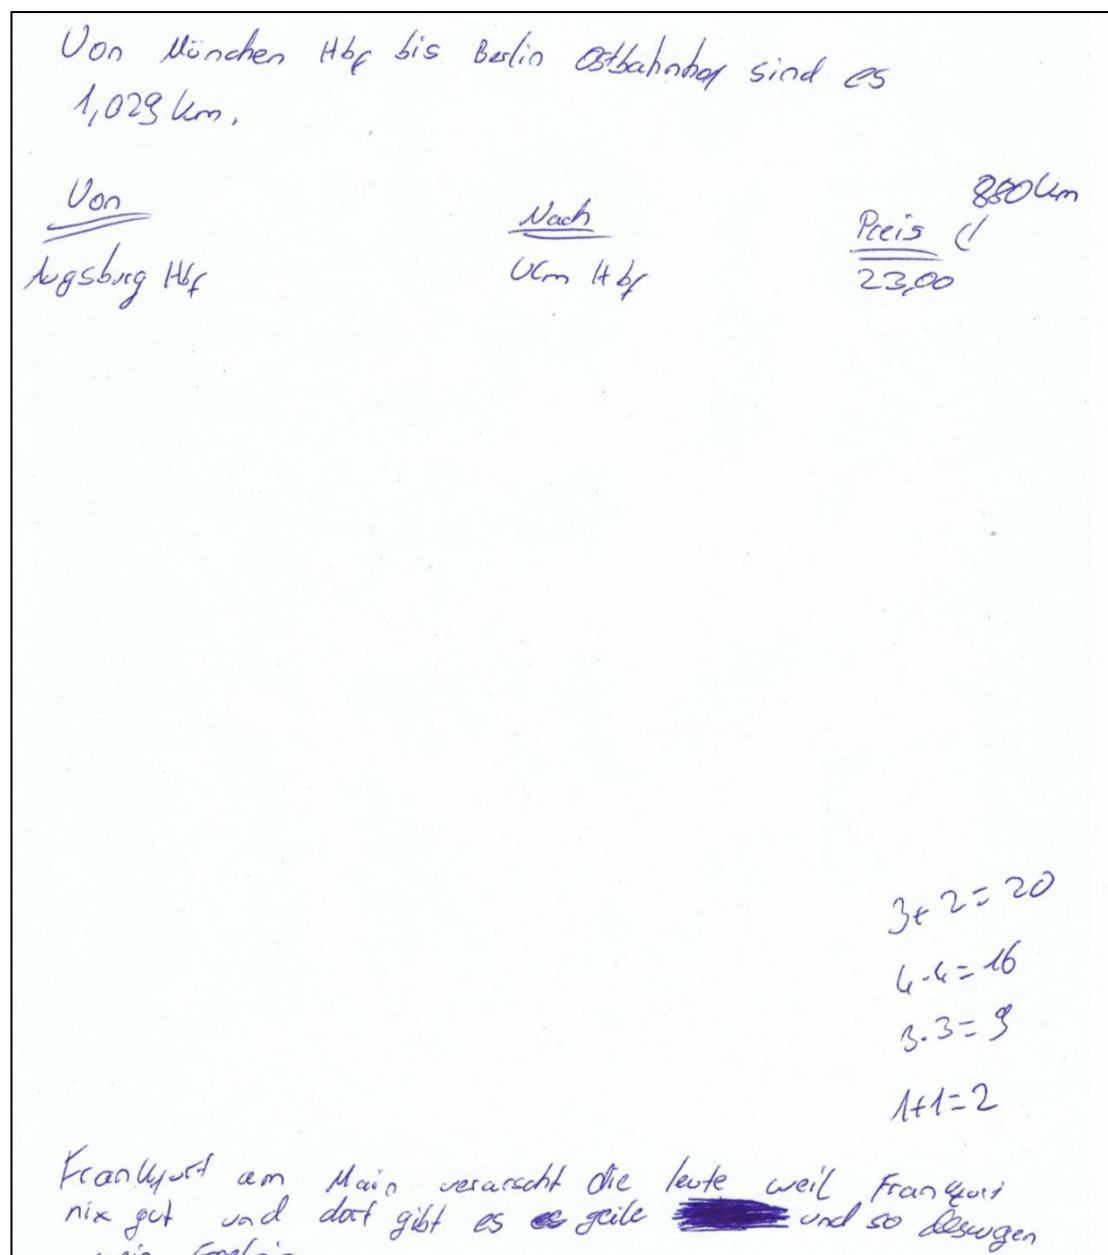 Von München Hbf bis Berlin Ostbahnhof sind es
1,029 km.
880 km
Von Nach Preis
Augsburg Hbf Ulm Hbf 23,00
3+2=20
4·4=16
3·3=9
1+1=2
Frankfurt am Main verarscht die leute weil Frankfurt
nix gut und dort gibt es es geile und so deswegen